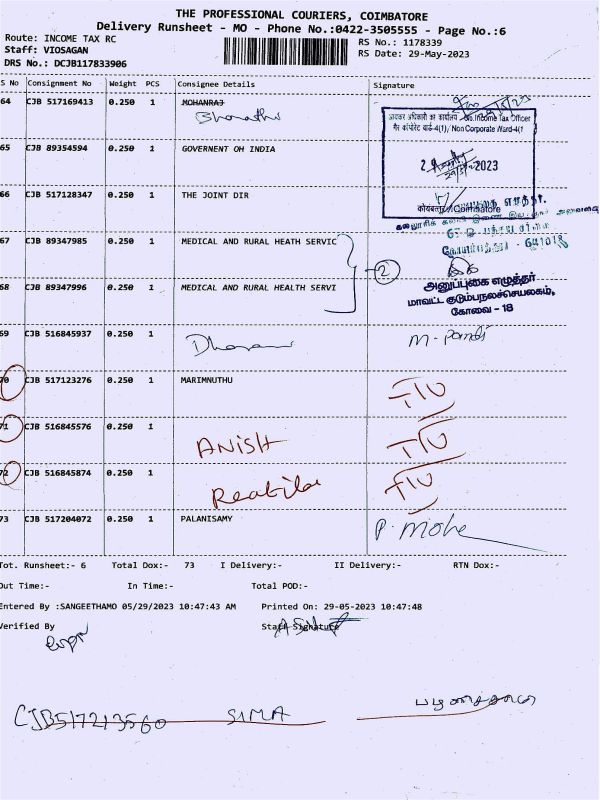 THE PROFESSIONAL COURIERS, COIMBATORE
Delivery Runsheet - MO - Phone No.:0422-3505555 - Page No.:6
Route: INCOME TAX RC
RS No.: 1178339
Staff: VIOSAGAN
RS Date: 29-May-2023
DRS No.: DCJB117833906
S No Consignment No Weight PCS Consignee Details Signature
64 CJB 517169413 0.250 1 MOHANRAJ
Bharathi
आयकर अधिकारी का कार्यालय Income Tax Officer
गैर कॉर्पोरेट वार्ड-4(1)/ Non Corporate Ward-4(1)
65 CJB 89354594 0.250 1 GOVERNENT OH INDIA
2023
66 CJB 517128347 0.250 1 THE JOINT DIR
/Coimbatore
67 CJB 89347985 0.250 1 MEDICAL AND RURAL HEATH SERVIC
2
68 CJB 89347996 0.250 1 MEDICAL AND RURAL HEALTH SERVI
அனுப்புகை எழுத்தர்
மாவட்ட குடும்பநலச்செயலகம்,
கோவை - 18
69 CJB 516845937 0.250 1
70 CJB 517123276 0.250 1 MARIMNUTHU
71 CJB 516845576 0.250 1
ANISH
72 CJB 516845874 0.250 1
73 CJB 517204072 0.250 1 PALANISAMY
Tot. Runsheet:- 6 Total Dox:- 73 I Delivery:- II Delivery:- RTN Dox:-
Out Time:- In Time:- Total POD:-
Entered By :SANGEETHAMO 05/29/2023 10:47:43 AM Printed On: 29-05-2023 10:47:48
Verified By Staff Signature
CJB517213560 SIMA